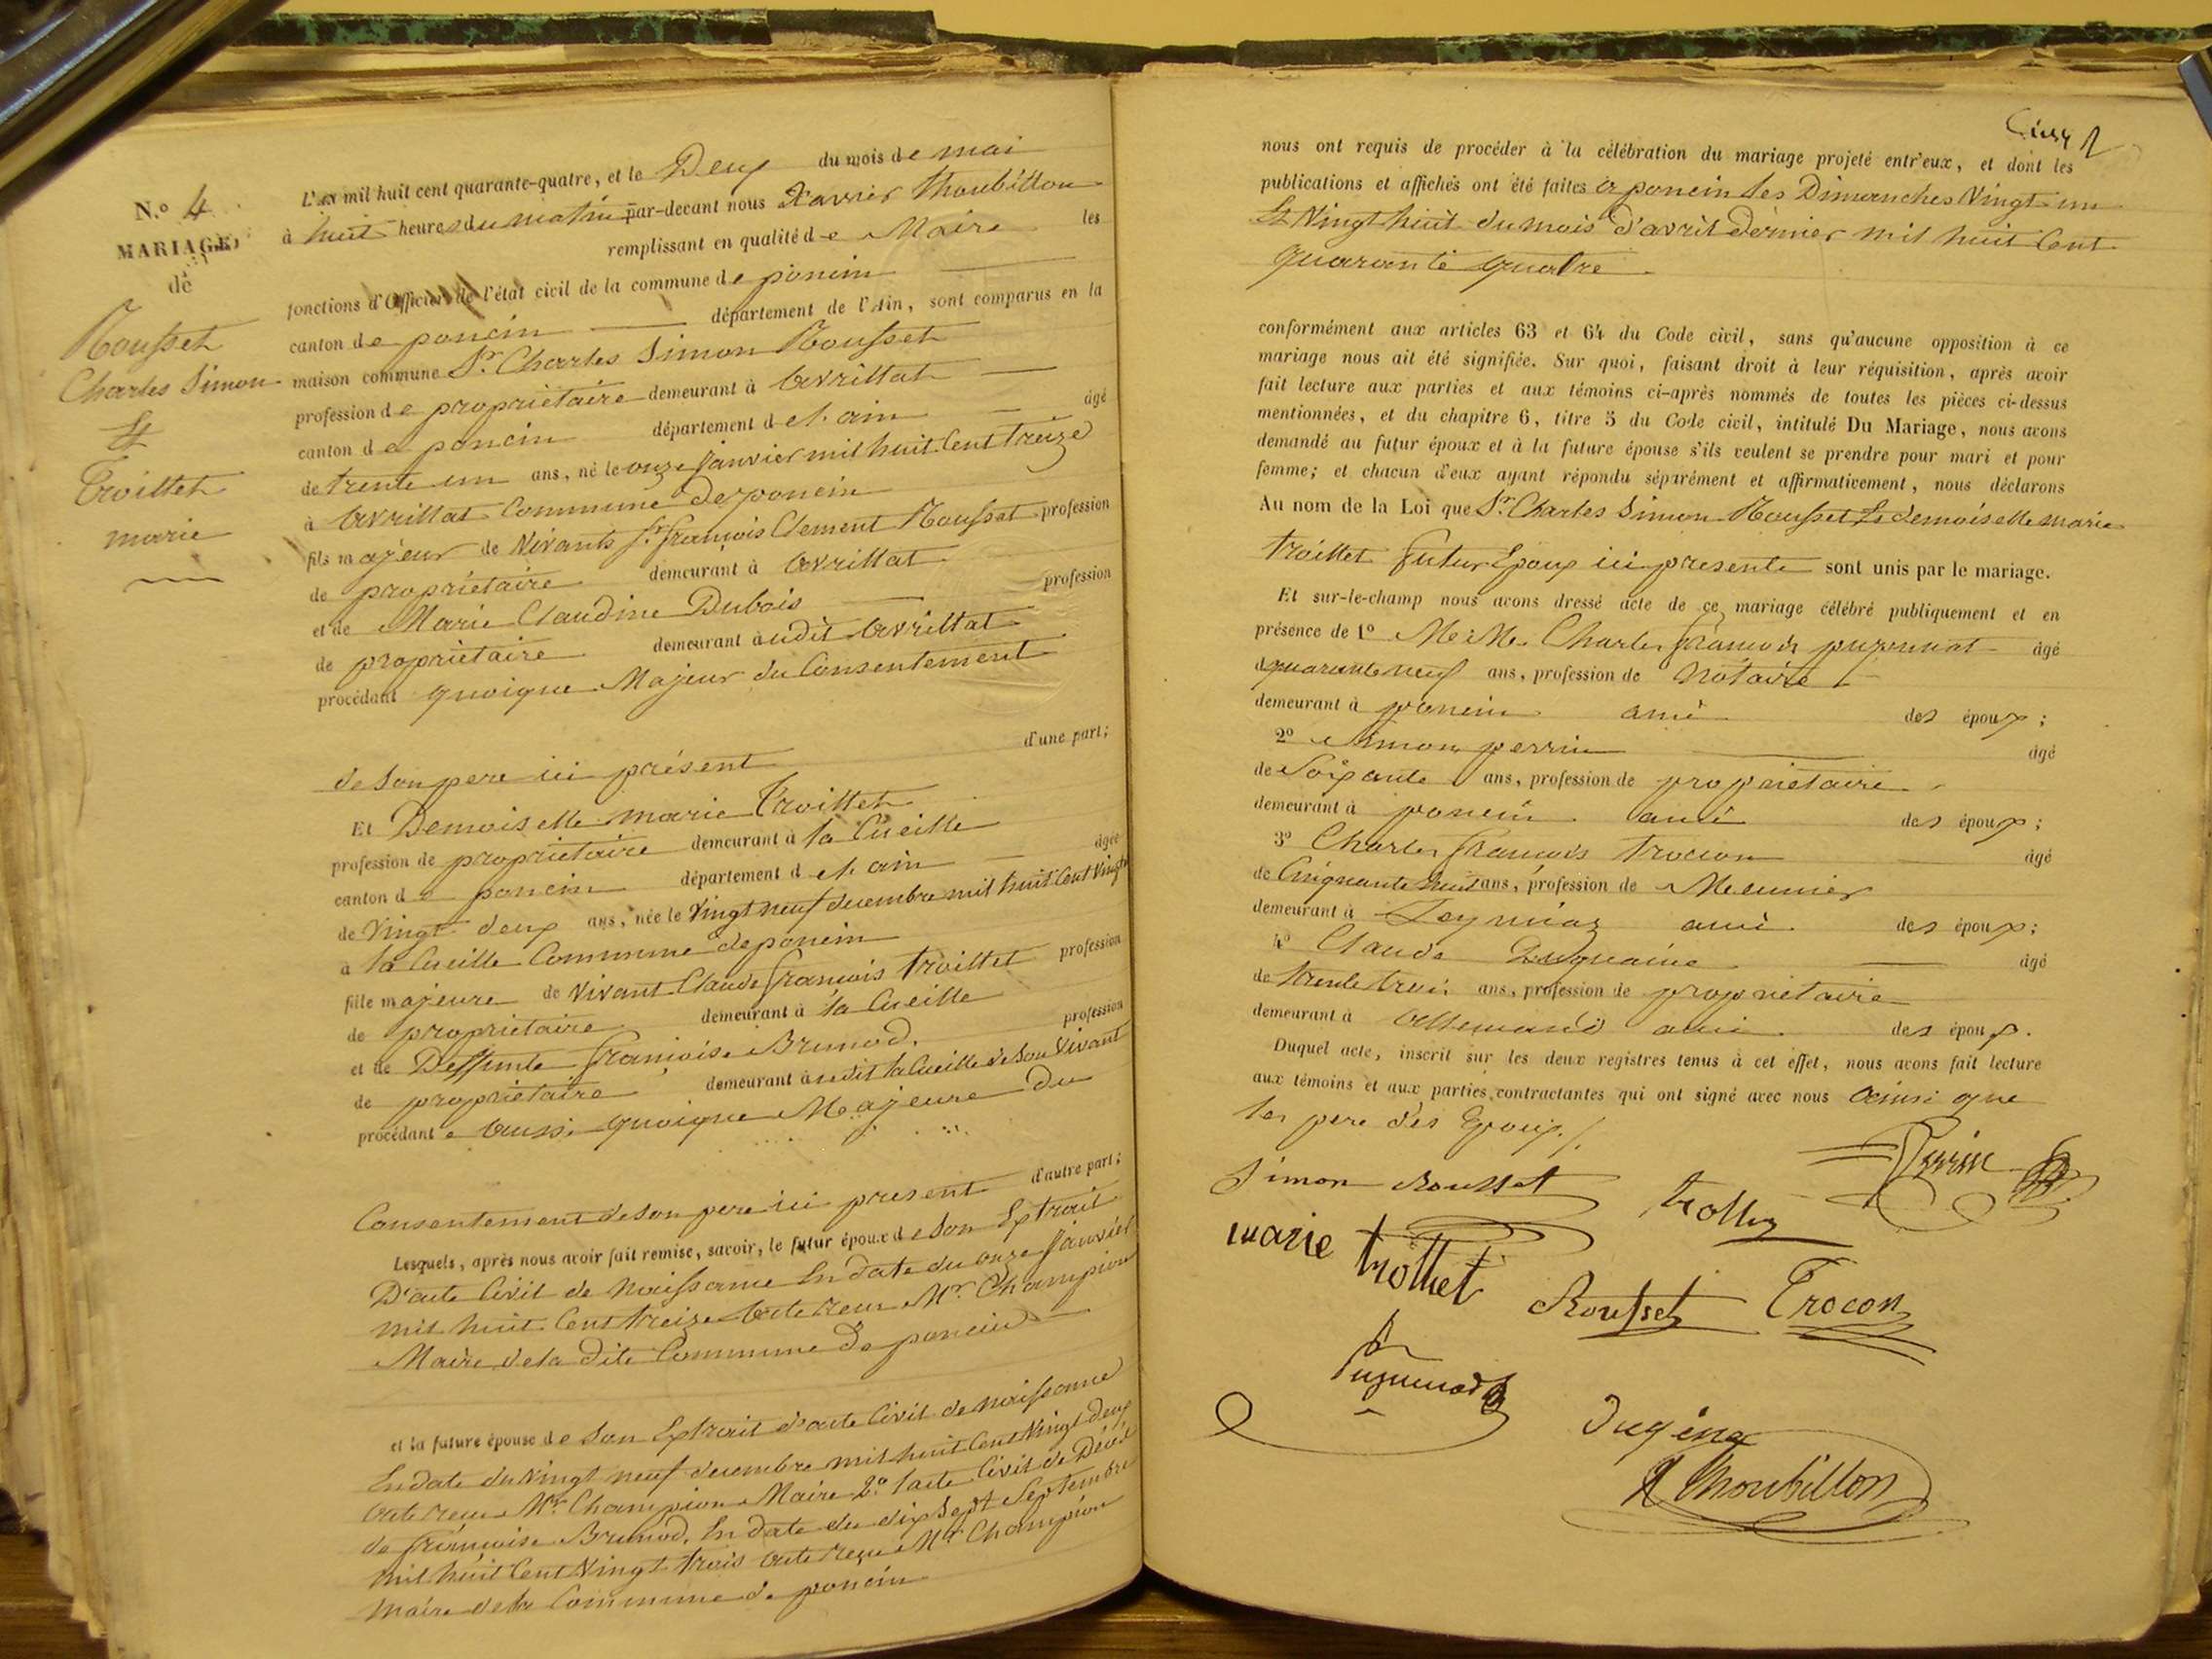 N.º 4
MARIAGE
de
Rousset
Charles Simon
Et
Troillet
marie
L'an mil huit cent quarante-quatre, et le Deux du mois de mai
à huit heures du matin par-devant nous Xavier Thoubillon
remplissant en qualité de Maire les
fonctions d'Officier de l'état civil de la commune de poncin
canton de poncin département de l'Ain, sont comparus en la
maison commune Sr. Charles Simon Rousset
profession de propriétaire demeurant à avrillat
canton de poncin département de l'ain âgé
de trente un ans, né le onze Janvier mil huit Cent treize
à avrillat Commune de poncin
fils majeur de Vivants Sr. françois Clement Rousset profession
de propriétaire demeurant à avrillat
et de Marie Claudine Dubois profession
de propriétaire demeurant audit avrillat
procédant quoique Majeur du Consentement
de son pere ici présent d'une part;
Et Demoiselle marie Troillet
profession de propriétaire demeurant à la Cueille
canton de poncin département de l'ain âgée
de Vingt deux ans, née le Vingt neuf decembre mil huit Cent Vingt
à la Cueille Commune de poncin
fille majeure de Vivant Claude françois troillet profession
de propriétaire demeurant à la Cueille
et de Deffunte françoise Brunod. profession
de propriétaire demeurant audit la Cueille de Son Vivant
procédant aussi quoique Majeure du
Consentement de son pere ici present d'autre part;
Lesquels, après nous avoir fait remise, savoir, le futur époux de son Extrait
D'acte Civil de naissance En date du onze Janvier
mil huit Cent treize acte reçu Mr. Champion
Maire de la dite Commune de poncin
et la future épouse de son Extrait d'acte Civil de naissance
En date du Vingt neuf decembre mil huit Cent Vingt deux
acte reçu Mr. Champion Maire 2.º l'acte Civil de Décé
de françoise Brunod. En date du dix Sept Septembre
mil huit Cent Vingt trois acte reçu Mr Champion
maire de la Commune de poncin
Cinq
nous ont requis de procéder à la célébration du mariage projeté entr'eux, et dont les
publications et affiches ont été faites a poncin les Dimanches Vingt un
Et Vingt huit du mois d'avril Dernier mil huit Cent
quarante quatre
conformément aux articles 63 et 64 du Code civil, sans qu'aucune opposition à ce
mariage nous ait été signifiée. Sur quoi, faisant droit à leur réquisition, après avoir
fait lecture aux parties et aux témoins ci-après nommés de toutes les pièces ci-dessus
mentionnées, et du chapitre 6, titre 5 du Code civil, intitulé Du Mariage, nous avons
demandé au futur époux et à la future épouse s'ils veulent se prendre pour mari et pour
femme; et chacun d'eux ayant répondu séparément et affirmativement, nous déclarons
Au nom de la Loi que Sr. Charles Simon Rousset Et demoiselle marie
troillet futur Epoux ici presente sont unis par le mariage.
Et sur-le-champ nous avons dressé acte de ce mariage célébré publiquement et en
présence de 1º Charles françois âgé
de quarante neuf ans, profession de Notaire
demeurant à poncin ami des époux;
2º Simon perrin âgé
de Soixante ans, profession de propriétaire
demeurant à poncin ami des époux;
3º Charles françois trocon âgé
de Cinquante huit ans, profession de Meunier
demeurant à Leymiaz ami des époux;
4º Claude âgé
de trente trois ans, profession de propriétaire
demeurant à allemand ami des époux.
Duquel acte, inscrit sur les deux registres tenus à cet effet, nous avons fait lecture
aux témoins et aux parties contractantes qui ont signé avec nous ainsi que
les pere des Epoux./.
Perrin
Simon Rousset
marie trollet
Rousset Trocon
Thoubillon